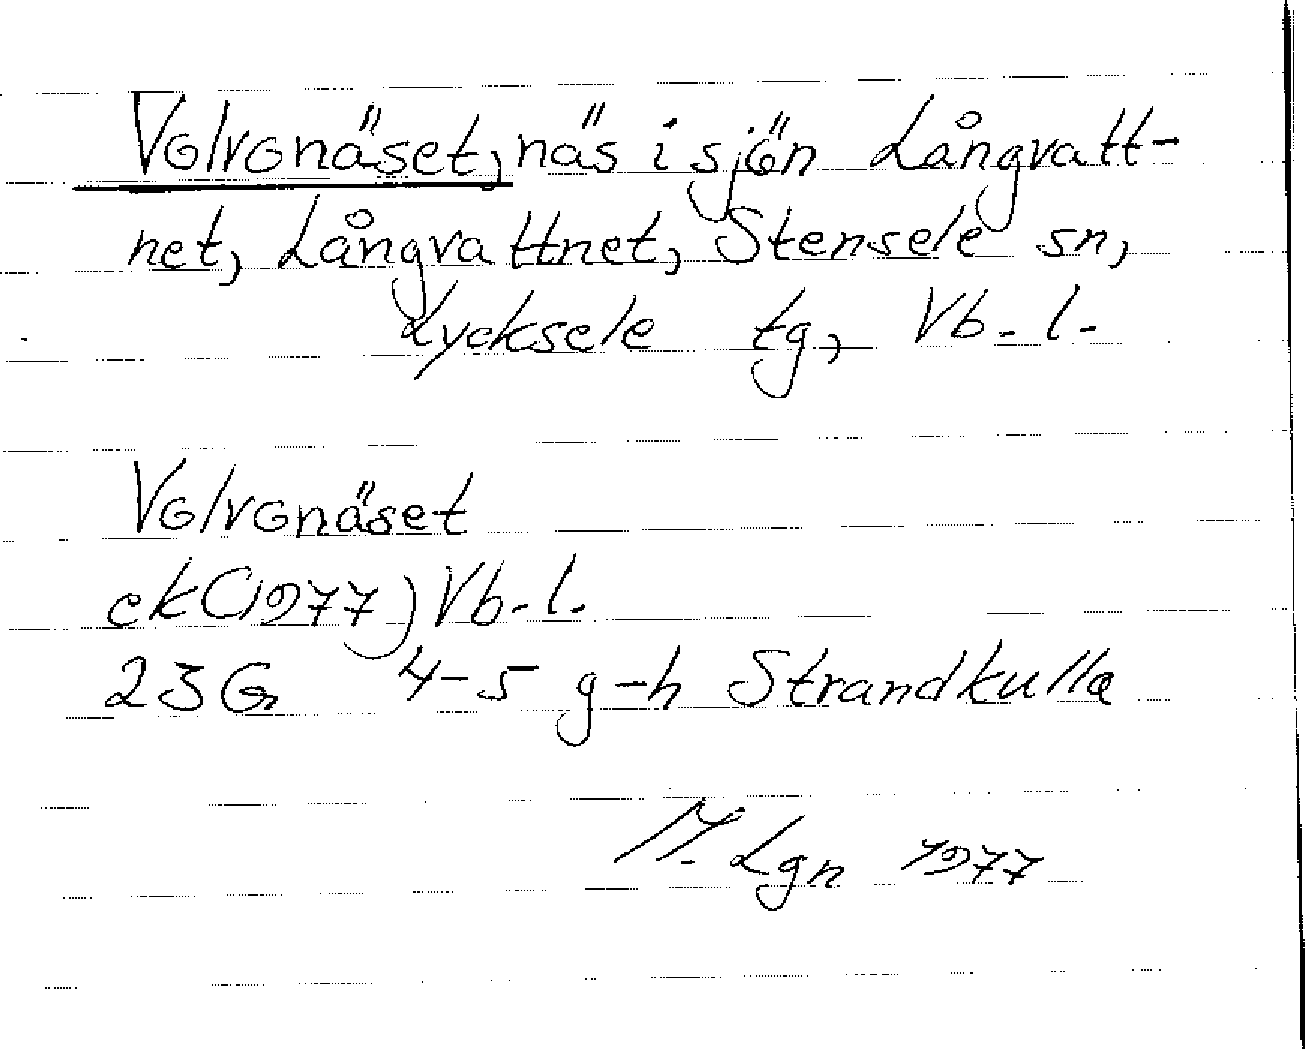 Volvonäset, näs i sjön Långvatt-
net, Långvattnet, Stensele sn,
Lycksele tg, Vb. l.
Volvonäset
ek (1977) Vb. l.
23G 4-5 g-h Strandkulla
M. Lgn 1977